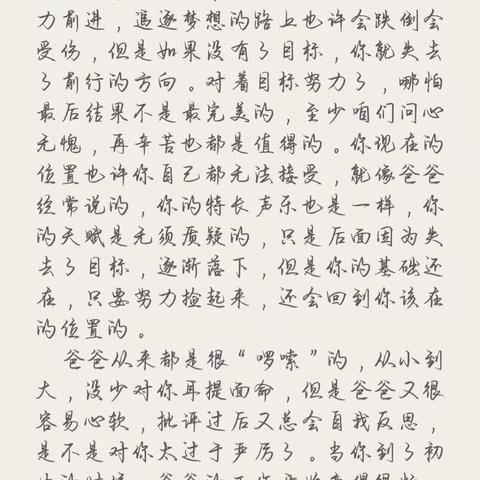 力前进，追逐梦想的路上也许会跌倒会
受伤，但是如果没有了目标，你就失去
了前行的方向。对着目标努力了，哪怕
最后结果不是最完美的，至少咱们问心
无愧，再辛苦也都是值得的。你现在的
位置也许你自己都无法接受，就像爸爸
经常说的，你的特长声乐也是一样，你
的天赋是无须质疑的，只是后面因为失
去了目标，逐渐落下，但是你的基础还
在，只要努力捡起来，还会回到你该在
的位置的。
爸爸从来都是很“啰嗦”的，从小到
大，没少对你耳提面命，但是爸爸又很
容易心软，批评过后又总会自我反思，
是不是对你太过于严厉了。当你到了初